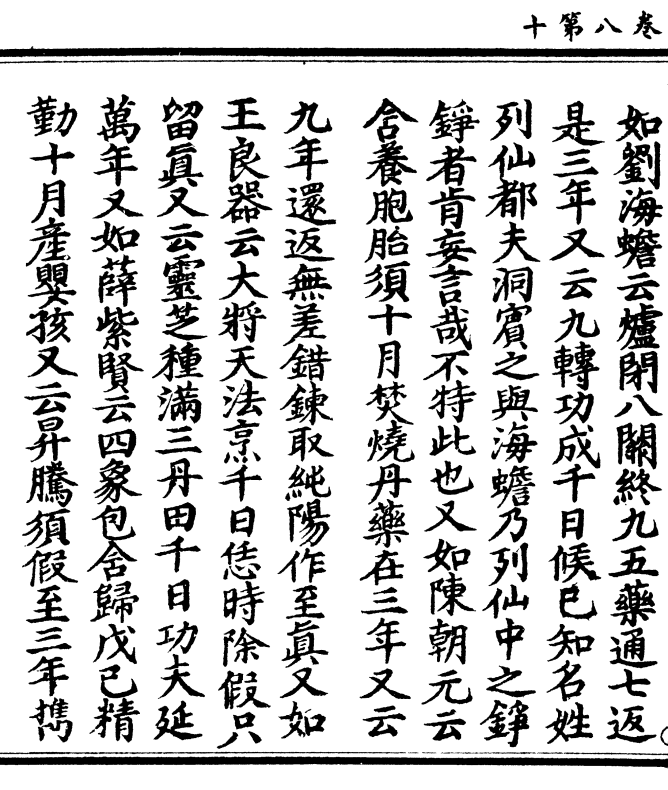 卷八第十
如劉海蟾云爐閉八關終九五藥通七返
是三年又云九轉功成千日候已知名姓
列仙都夫洞賓之與海蟾乃列仙中之錚
錚者肯妄言哉不特此也又如陳朝元云
含養胞胎須十月焚燒丹藥在三年又云
九年還返無差錯鍊取純陽作至眞又如
王良器云大將天法烹千日恁時除假只
留眞又云靈芝種滿三丹田千日功夫延
萬年又如薛紫賢云四象包含歸戊己精
勤十月產嬰孩又云昇騰須假至三年攜